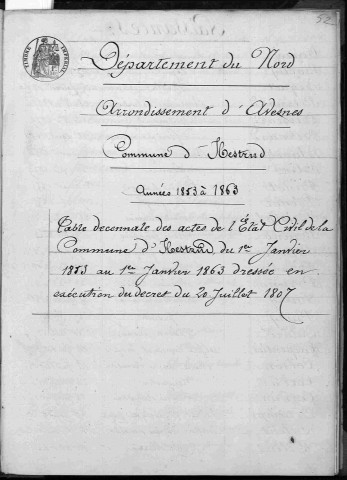 52
TIMBRE IMPERIAL
Département du Nord
Arrondissement d'Avesnes
Commune d'Hestrud
Années 1853 à 1863
Table decennale des actes de l'Etat Civil de la
Commune d'Hestrud du 1er Janvier
1853 au 1er Janvier 1863 dressée en
exécution du decret du 20 Juillet 1807